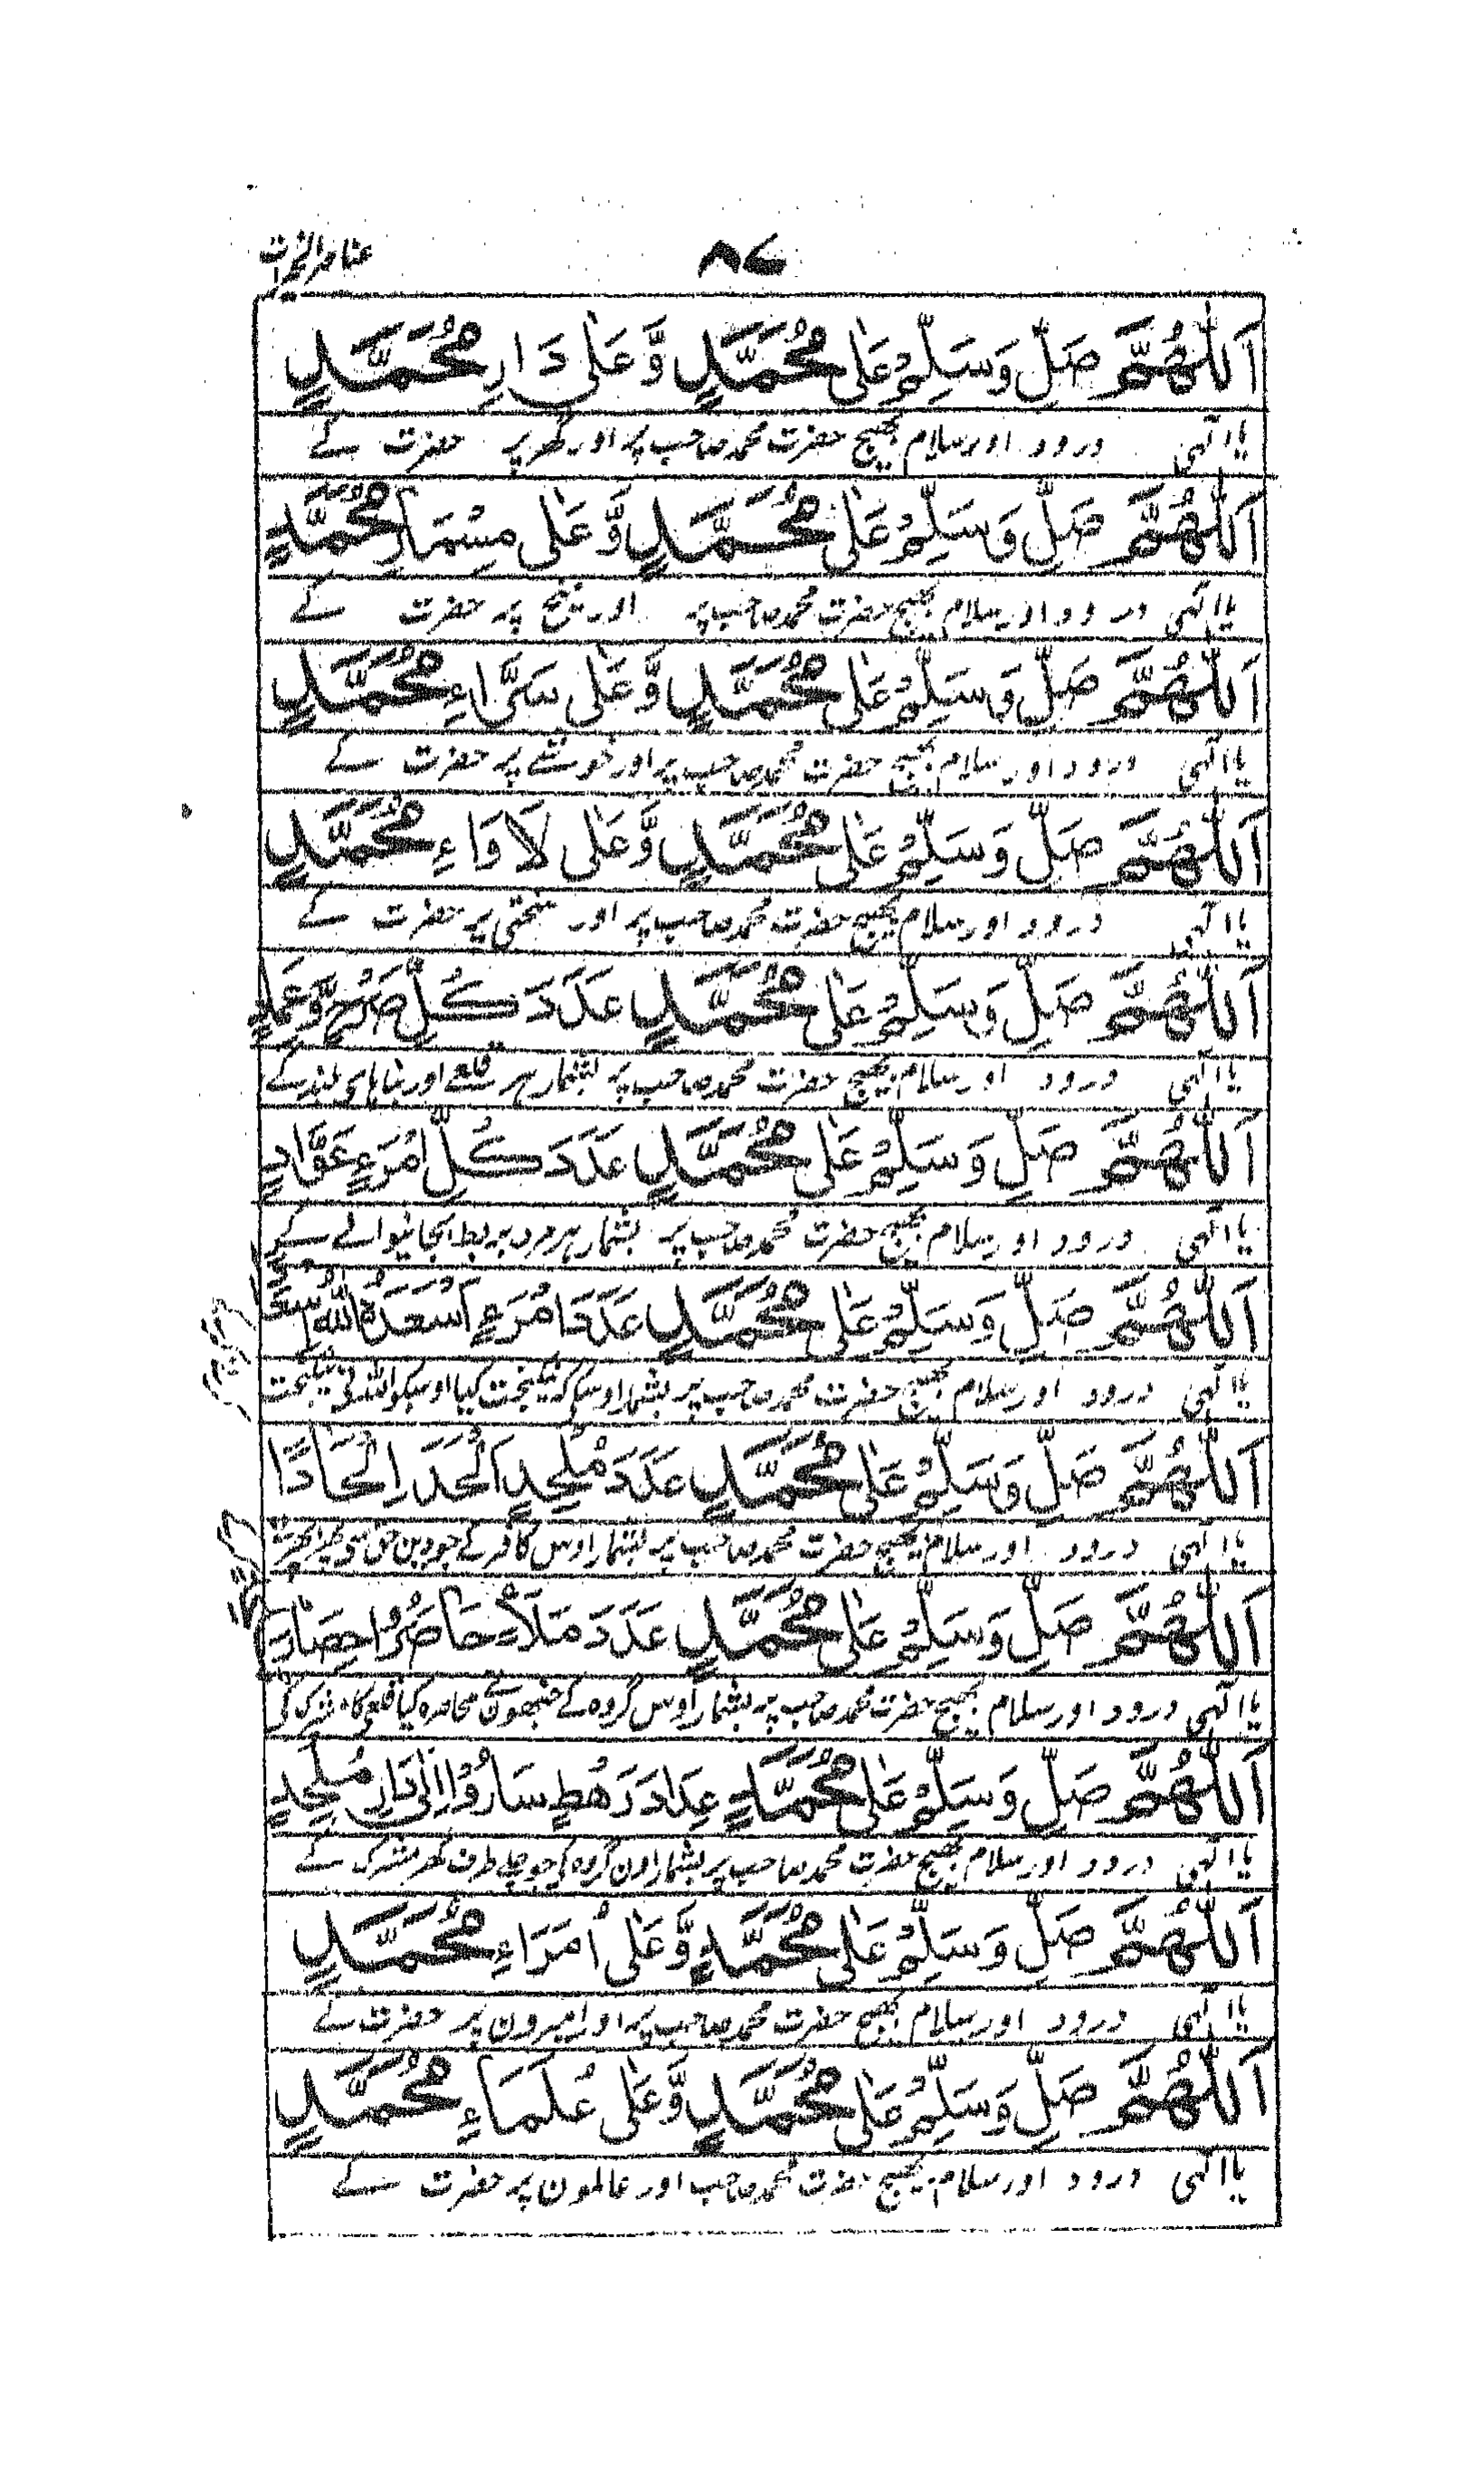 ۸۷
عناصر الخیرات
اَللّٰهُمَّ صَلِّ وَسَلِّمْ عَلٰى مُحَمَّدٍ وَّعَلٰى دَارِ مُحَمَّدٍ
یا الٰہی درود اور سلام بھیج حضرت محمد صاحب پر اور گھر پر حضرت کے
اَللّٰهُمَّ صَلِّ وَسَلِّمْ عَلٰى مُحَمَّدٍ وَّعَلٰى مِسْمَارِ مُحَمَّدٍ
یا الٰہی درود اور سلام بھیج حضرت محمد صاحب پر اور میخ پر حضرت کے
اَللّٰهُمَّ صَلِّ وَسَلِّمْ عَلٰى مُحَمَّدٍ وَّعَلٰى سَرَّاءِ مُحَمَّدٍ
یا الٰہی درود اور سلام بھیج حضرت محمد صاحب پر اور خوشے پر حضرت کے
اَللّٰهُمَّ صَلِّ وَسَلِّمْ عَلٰى مُحَمَّدٍ وَّعَلٰى لَاوَاءِ مُحَمَّدٍ
یا الٰہی درود اور سلام بھیج حضرت محمد صاحب پر اور سختی پر حضرت کے
اَللّٰهُمَّ صَلِّ وَسَلِّمْ عَلٰى مُحَمَّدٍ عَدَدَ كُلِّ صَرْحٍ وَّعِمَادٍ
یا الٰہی درود اور سلام بھیج حضرت محمد صاحب پر بشمار ہر قلعے اور بناہای بلند کے
اَللّٰهُمَّ صَلِّ وَسَلِّمْ عَلٰى مُحَمَّدٍ عَدَدَ كُلِّ امْرَءٍ عَوَّادٍ
یا الٰہی درود اور سلام بھیج حضرت محمد صاحب پر بشمار ہر مرد بربط بجانیوالے کے
اَللّٰهُمَّ صَلِّ وَسَلِّمْ عَلٰى مُحَمَّدٍ عَدَدَ امْرَءٍ اَسْعَدَهُ اللّٰهُ
یا الٰہی درود اور سلام بھیج حضرت محمد صاحب پر بشمار اوسکہ نیکبخت کیا اوسکو اللہ نی نیکبخت
اَللّٰهُمَّ صَلِّ وَسَلِّمْ عَلٰى مُحَمَّدٍ عَدَدَ مُلْحِدٍ اَلْحَدَ اِلْحَادًا
یا الٰہی درود اور سلام بھیج حضرت محمد صاحب پر بشمار اوس کافر کے جو دین حق سے
اَللّٰهُمَّ صَلِّ وَسَلِّمْ عَلٰى مُحَمَّدٍ عَدَدَ مَلَأٍ حَاصَرُوْا حِصَارَ
یا الٰہی درود اور سلام بھیج حضرت محمد صاحب پر بشمار اوس گروہ کے جنھوں نے محاصرہ کیا قلعی کا
اَللّٰهُمَّ صَلِّ وَسَلِّمْ عَلٰى مُحَمَّدٍ عِدَادَ رَهْطٍ سَارُوْا اِلٰى دَارِ مُلْحِدٍ
یا الٰہی درود اور سلام بھیج حضرت محمد صاحب پر بشمار اون گروہ کی جو چلے طرف گھر مشرک کے
اَللّٰهُمَّ صَلِّ وَسَلِّمْ عَلٰى مُحَمَّدٍ وَّعَلٰى اُمَرَاءِ مُحَمَّدٍ
یا الٰہی درود اور سلام بھیج حضرت محمد صاحب پر اور امیرون پر حضرت کے
اَللّٰهُمَّ صَلِّ وَسَلِّمْ عَلٰى مُحَمَّدٍ وَّعَلٰى عُلَمَاءِ مُحَمَّدٍ
یا الٰہی درود اور سلام بھیج حضرت محمد صاحب اور عالمون پر حضرت کے